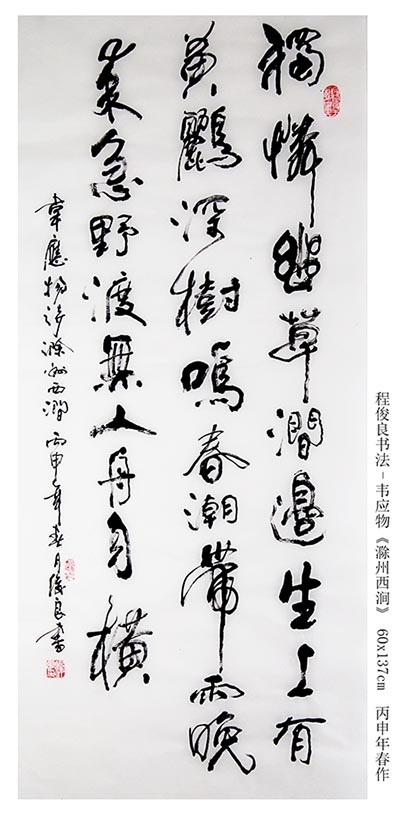 獨憐幽草澗邊生上有
黃鸝深樹鳴春潮帶雨晚
來急野渡無人舟自橫
韋應物詩滁州西澗 丙申年春月俊良書
程俊良书法-韦应物《滁州西涧》 60x137cm 丙申年春作